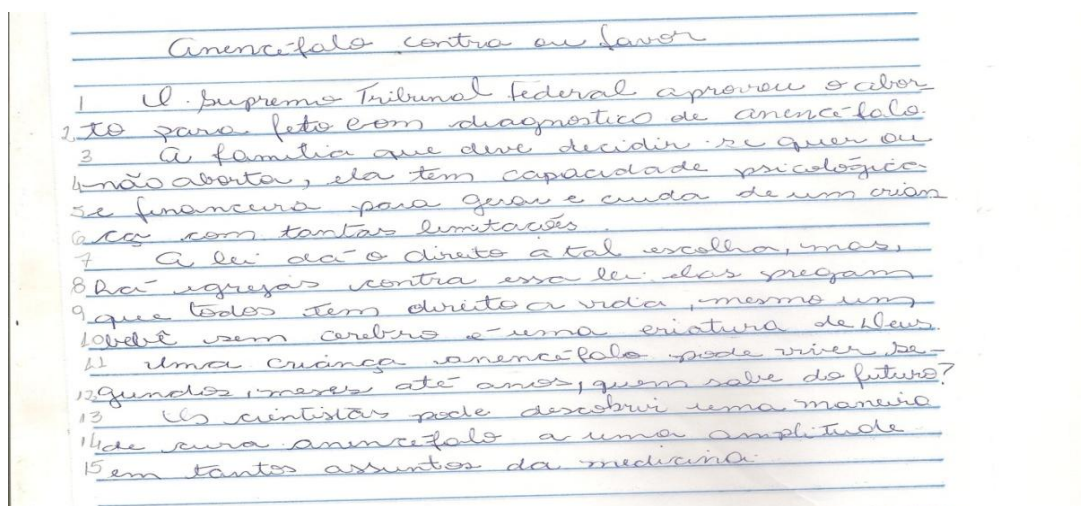 Anencéfalo contra ou favor
1 O. Supremo Tribunal Federal aprovou o abor-
2 to para feto com diagnostico de anencéfalo.
3 A família que deve decidir se quer ou
4 não aborta, ela tem capacidade psicológica
5 e financeira para gerar e cuida de um crian
6 ça com tantas limitações.
7 A lei dá o direito a tal escolha, mas,
8 há igrejas contra essa lei elas pregam
9 que todos tem direito a vida, mesmo um
10 bebê sem cerebro é uma criatura de Deus.
11 Uma criança anencéfalo pode viver se-
12 gundos, meses até anos, quem sabe do futuro?
13 Os cientistas pode descobri uma maneira
14 de cura anencefalo a uma amplitude
15 em tantos assuntos da medicina.